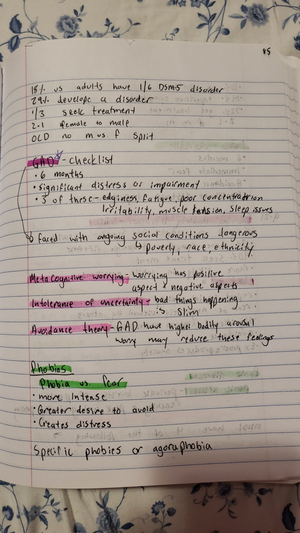 85
18% us adults have 1/6 DSM5 disorder
29% develope a disorder
1/3 seek treatment
2:1 female to male
OCD no m vs. f split
GAD - checklist
• 6 months
• significant distress or impairment
• 3 of these - edginess, fatigue, poor concentration
irritability, muscle tension, sleep issues
faced with ongoing social conditions dangerous
↳ poverty, race, ethnicity
Meta cognitive worrying - worrying has positive
aspect & negative aspects
Intolerance of uncertainty - bad things happening
is slim
Avoidance theory - GAD have higher bodily arousal
worry may reduce these feelings
Phobias
Phobia vs fear
• more intense
• Greater desire to avoid
• Creates distress
Specific phobies or agoraphobia